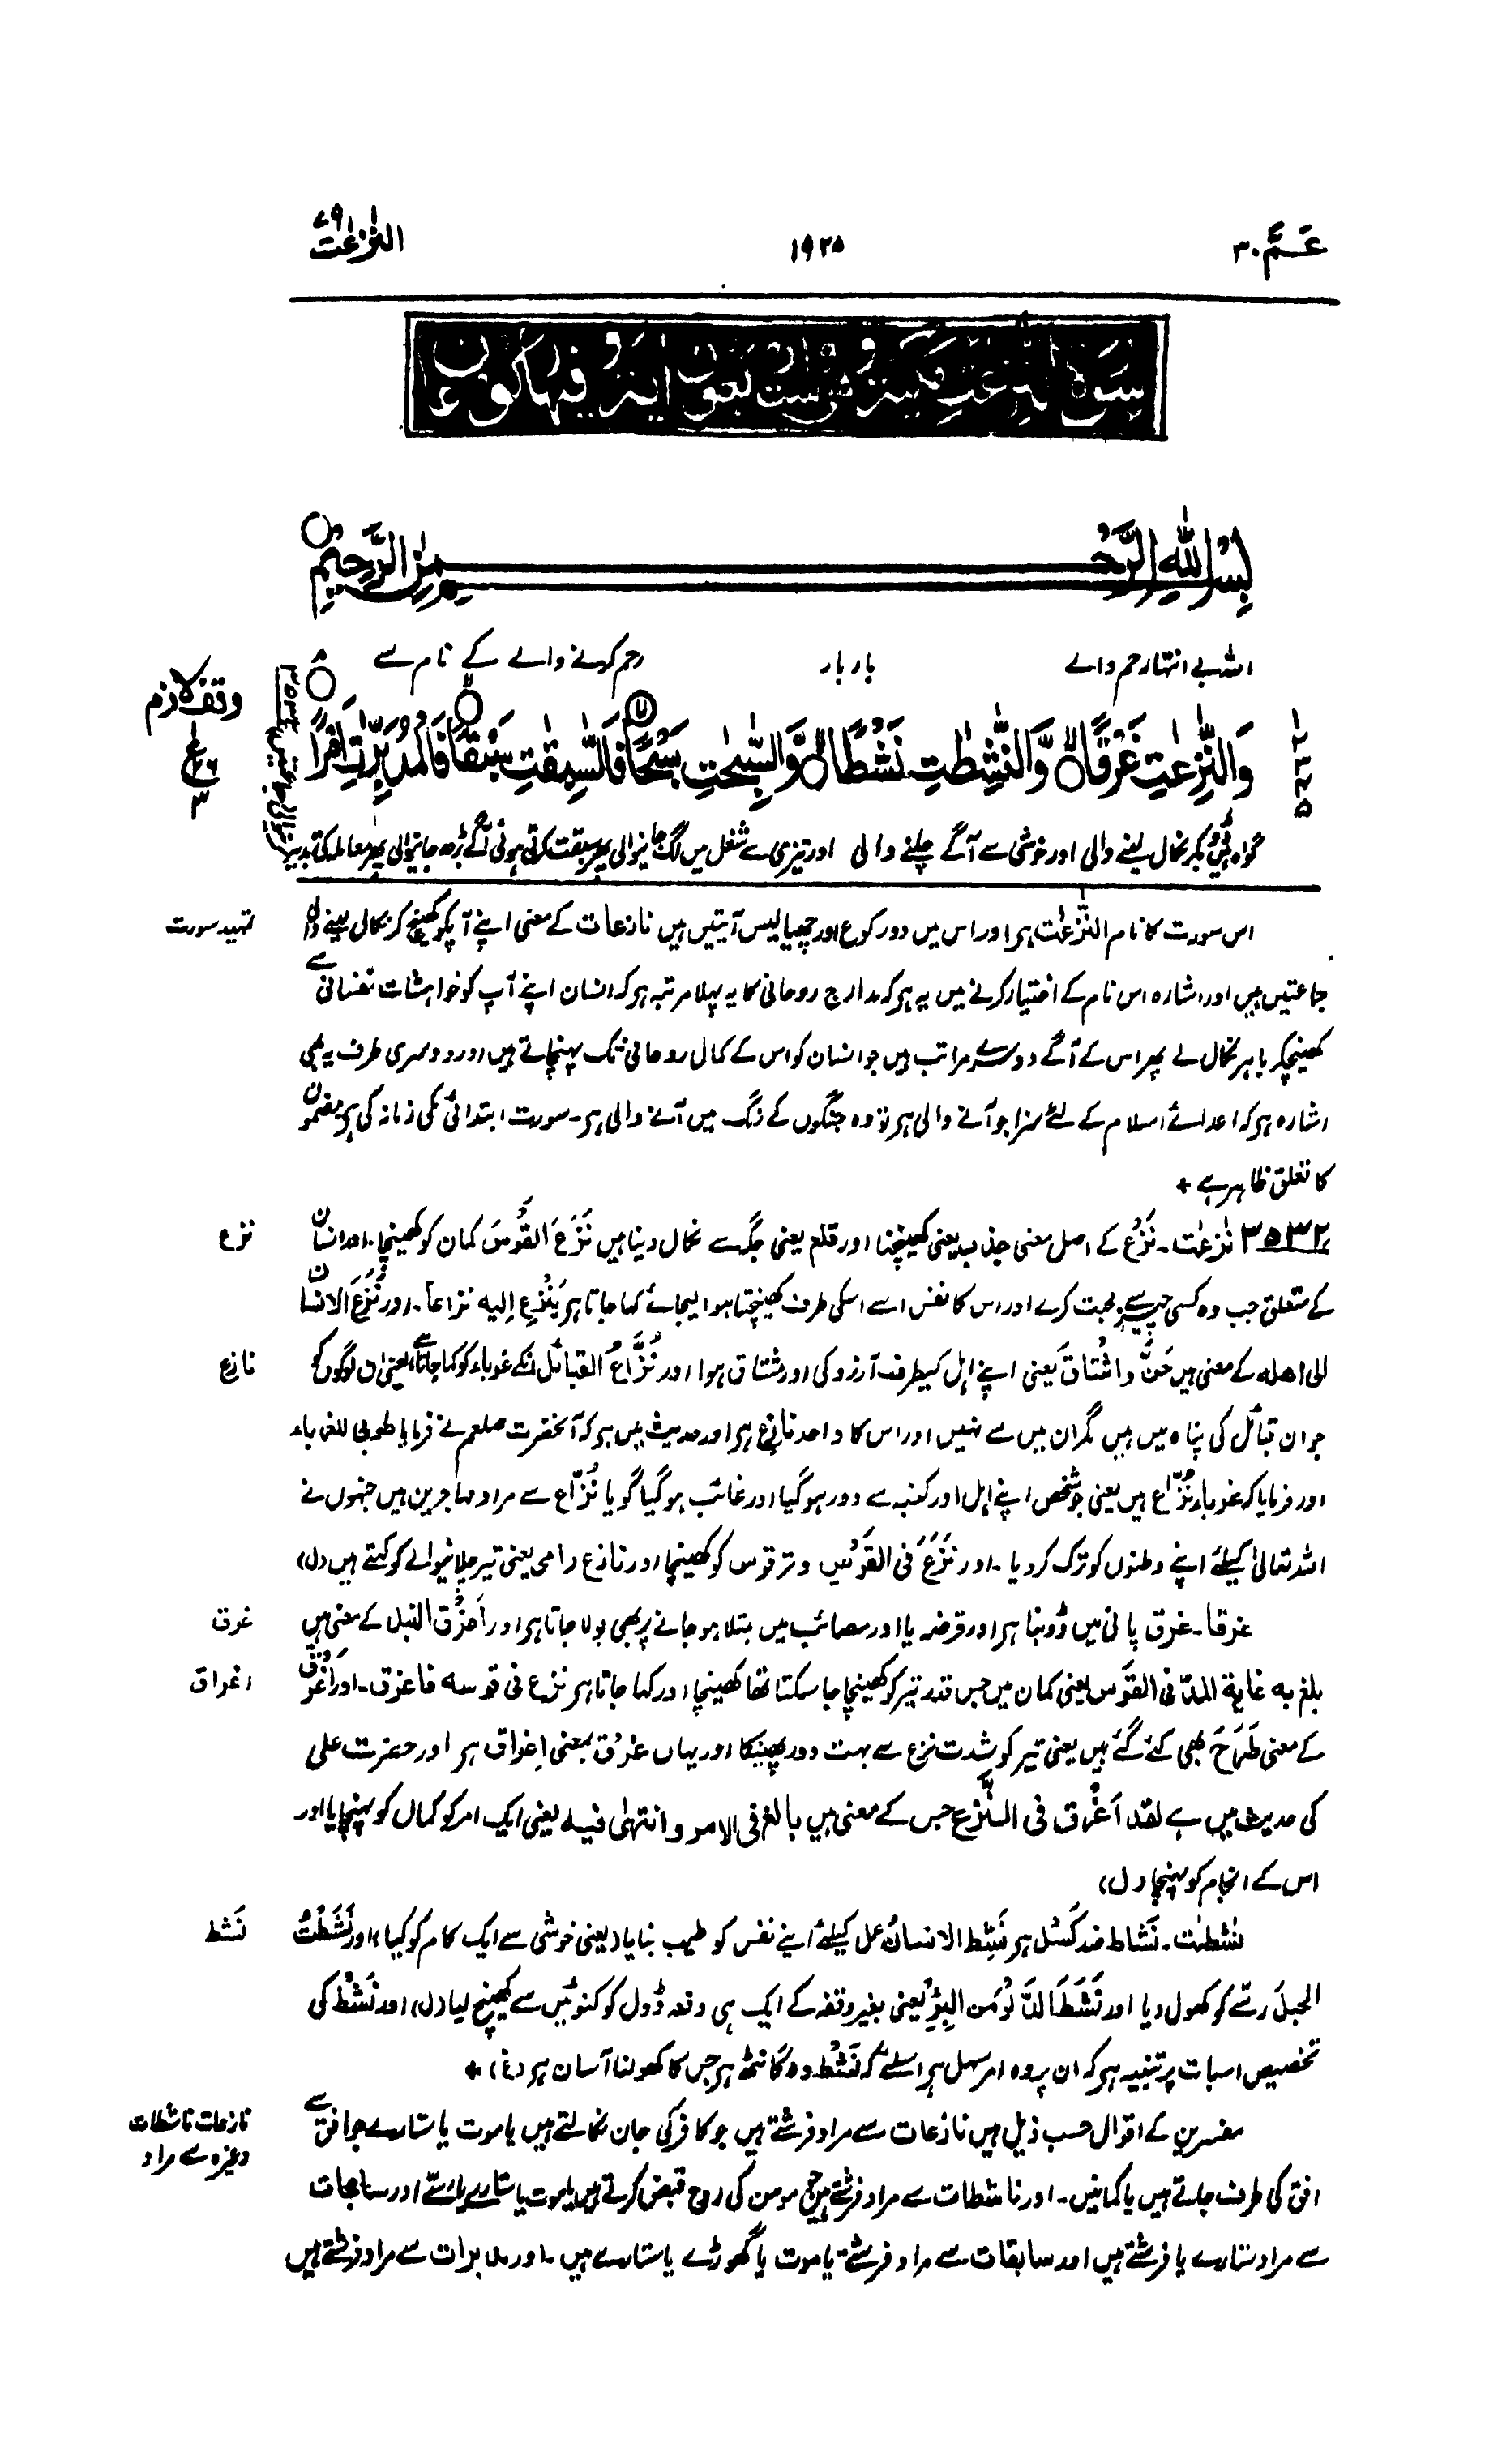 عَـمَّ ۳۰
۱۹۲۵
النّٰزعٰت ۷۹
بِسْمِ اللّٰهِ الرَّحْمٰنِ الرَّحِيْمِ
اللہ بے انتہا رحم والے بار بار رحم کرنے والے کے نام سے
وَالنّٰزِعٰتِ غَرْقًا ۙ وَّالنّٰشِطٰتِ نَشْطًا ۙ وَّالسّٰبِحٰتِ سَبْحًا ۙ فَالسّٰبِقٰتِ سَبْقًا ۙ فَالْمُدَبِّرٰتِ اَمْرًا ۘ
وقف لازم
گواہ ہیں ڈوب کر نکال لینے والی اور خوشی سے آگے چلنے والی اور تیزی سے شغل میں لگ جانیوالی پھر سبقت کرتی ہوئی آگے بڑھ جانیوالی پھر معاملہ کی تدبیر
تمہید سورت
اس سورت کا نام النّٰزعٰت ہر اور اس میں دو رکوع اور چھیالیس آیتیں ہیں نازعات کے معنی اپنے آپکو کھینچ کر نکال لینے والی
جماعتیں ہیں اور اشارہ اس نام کے اختیار کرنے میں یہ ہر کہ مدارج روحانی کا یہ پہلا مرتبہ ہر کہ انسان اپنے آپ کو خواہشات نفسانی سے
کھینچکر باہر نکال لے پھر اس کے آگے دوسرے مراتب ہیں جو انسان کو اس کے کمال روحانی تک پہنچاتے ہیں اور دوسری طرف یہ بھی
اشارہ ہر کہ اعدائے اسلام کے لئے سزا جو آنے والی ہر تو وہ جنگوں کے رنگ میں آنے والی ہر۔ سورت ابتدائی مکی زمانہ کی ہر مضمون
کا تعلق ظاہر ہے +
نزع
۳۵۳۲ نٰزعٰت۔ نَزْع کے اصل معنی جذب یعنی کھینچنا اور قلع یعنی جگہ سے نکال دینا ہیں نَزَعَ القَوْسَ کمان کو کھینچا۔ اور انسان
کے متعلق جب وہ کسی چیز سے محبت کرے اور اس کا نفس اسے اسکی طرف کھینچتا ہوا لیجائے کہا جاتا ہر یَنْزِع إليه نزاعاً۔ اور نَزَعَ الانسان
نازع
الی اهله کے معنی ہیں حَنَّ واشْتاق یعنی اپنے اہل کیطرف آرزو کی اور مشتاق ہوا اور نُزَّاعُ القبائل انکے غرباء کو کہا جاتا ہے یعنی ان لوگوں کو
جو ان قبائل کی پناہ میں ہیں مگر ان میں سے نہیں اور اس کا واحد نازع ہر اور حدیث میں ہر کہ آنحضرت صلعم نے فرمایا طوبی للغرباء
اور فرمایا کہ غرباء نُزَّاع ہیں یعنی جو شخص اپنے اہل اور کنبہ سے دور ہو گیا اور غائب ہو گیا گویا نُزَّاع سے مراد مہاجرین ہیں جنہوں نے
اللہ تعالیٰ کیلئے اپنے وطنوں کو ترک کر دیا۔ اور نَزَعَ فی القَوْسِ وتر قوس کو کھینچا اور نازع رامی یعنی تیر چلانیوالے کو کہتے ہیں (ل)
غرق
غرقا۔ غرق پانی میں ڈوبنا ہر اور قرضہ یا اور مصائب میں مبتلا ہو جانے پر بھی بولا جاتا ہر اور اَغْرَق النبل کے معنی ہیں
اغراق
بلغ به غاية المدّ فی القَوس یعنی کمان میں جس قدر تیر کو کھینچا جا سکتا تھا کھینچا اور کہا جاتا ہر نزع فی قوسه فاغرق۔ اور اَغرق
کے معنی طَرَحَ بھی کئے گئے ہیں یعنی تیر کو شدت نزع سے بہت دور پھینکا اور یہاں غرْق بمعنی اِغراق ہر اور حضرت علی
کی حدیث میں ہے لقد اَغْرق فی النَّزْع جس کے معنی ہیں بالغ فی الامر وانتهٰی فیه یعنی ایک امر کو کمال کو پہنچایا اور
اس کے انجام کو پہنچا (ل)
نَشط
نٰشطٰت۔ نَشاط ضد کَسَل ہر نَشِط الانسانُ عمل کیلئے اپنے نفس کو طیب بنایا (یعنی خوشی سے ایک کام کو کیا) اور نَشَطْتُ
الحبلَ رسّے کو کھول دیا اور نَشَطَ الدَّلْوَ من البِئْرِ یعنی بغیر وقفہ کے ایک ہی دفعہ ڈول کو کنوئیں سے کھینچ لیا (ل) اور نَشْط کی
تخصیص اسبات پر تنبیہ ہر کہ ان پر وہ امر سہل ہر اسلئے کہ نَشْط وہ گانٹھ ہر جس کا کھولنا آسان ہر (غ) +
نازعات ناشطات
وغیرہ سے مراد
مفسرین کے اقوال حسب ذیل ہیں نازعات سے مراد فرشتے ہیں جو کافر کی جان نکالتے ہیں یا موت یا ستارے جو افق سے
افق کی طرف جاتے ہیں یا کمانیں۔ اور ناشطات سے مراد فرشتے ہیں جو مومن کی روح قبض کرتے ہیں یا موت یا ستارے یا رسّے اور سابحات
سے مراد ستارے یا فرشتے ہیں اور سابقات سے مراد فرشتے یا موت یا گھوڑے یا ستارے ہیں۔ اور مدبرات سے مراد فرشتے ہیں